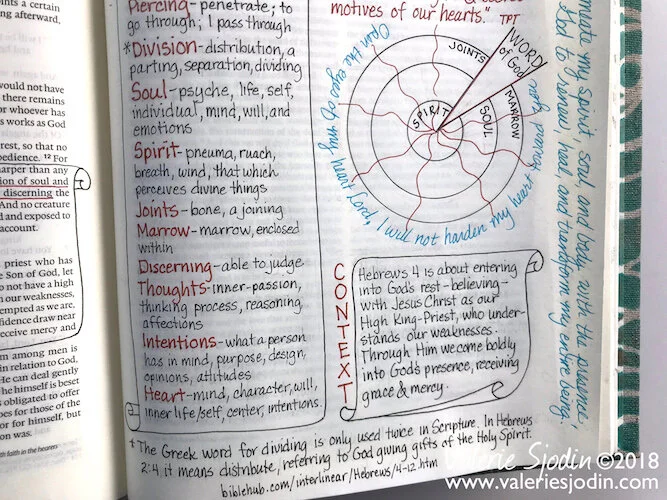 s a certain
ng afterward,
would not have
there remains
or whoever has
s works as God
rest, so that no
bedience. ¹² For
arper than any
ion of soul and
discerning the
And no creature
d and exposed to
account.
priest who has
e Son of God, let
o not have a high
our weaknesses,
empted as we are,
fidence draw near
receive mercy and
m among men is
in relation to God,
He can deal gently
he himself is beset
obligated to offer
oes for those of the
or for himself, but
on was.
with faith in the hearers
Piercing-penetrate; to
go through; I pass through
*Division-distribution, a
parting, separation, dividing
Soul-psyche, life, self,
individual, mind, will, and
emotions
Spirit-pneuma, ruach,
breath, wind, that which
perceives divine things
Joints-bone, a joining
Marrow-marrow, enclosed
within
Discerning-able to judge
Thoughts-inner-passion,
thinking process, reasoning,
affections
Intentions-what a person
has in mind, purpose, design,
opinions, attitudes
Heart-mind, character, will,
inner life/self, center, intentions.
motives of our hearts." TPT
JOINTS
WORD
of God
MARROW
SOUL
SPIRIT
Open the eyes of my heart Lord, I will not harden my heart
my spirit, soul, and body with the presence,
God to renew, heal, and transform my entire being.
CONTEXT
Hebrews 4 is about entering
into God's rest-believing-
with Jesus Christ as our
High King-Priest, who under-
stands our weaknesses.
Through Him we come boldly
into God's presence, receiving
grace & mercy.
* The Greek word for dividing is only used twice in Scripture. In Hebrews
2:4, it means distribute, referring to God giving gifts of the Holy Spirit.
biblehub.com/interlinear/Hebrews/4-12.htm
Valerie Sjodin ©2018
www.valeriesjodin.com